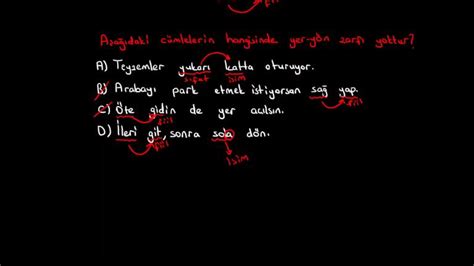 Aşağıdaki cümlelerin hangisinde yer-yön zarfı yoktur?
A) Teyzemler yukarı katta oturuyor.
sıfat isim
B) Arabayı park etmek istiyorsan sağ yap.
fiil
C) Öte gidin de yer açılsın.
fiil
D) İleri git, sonra sola dön.
fiil
isim